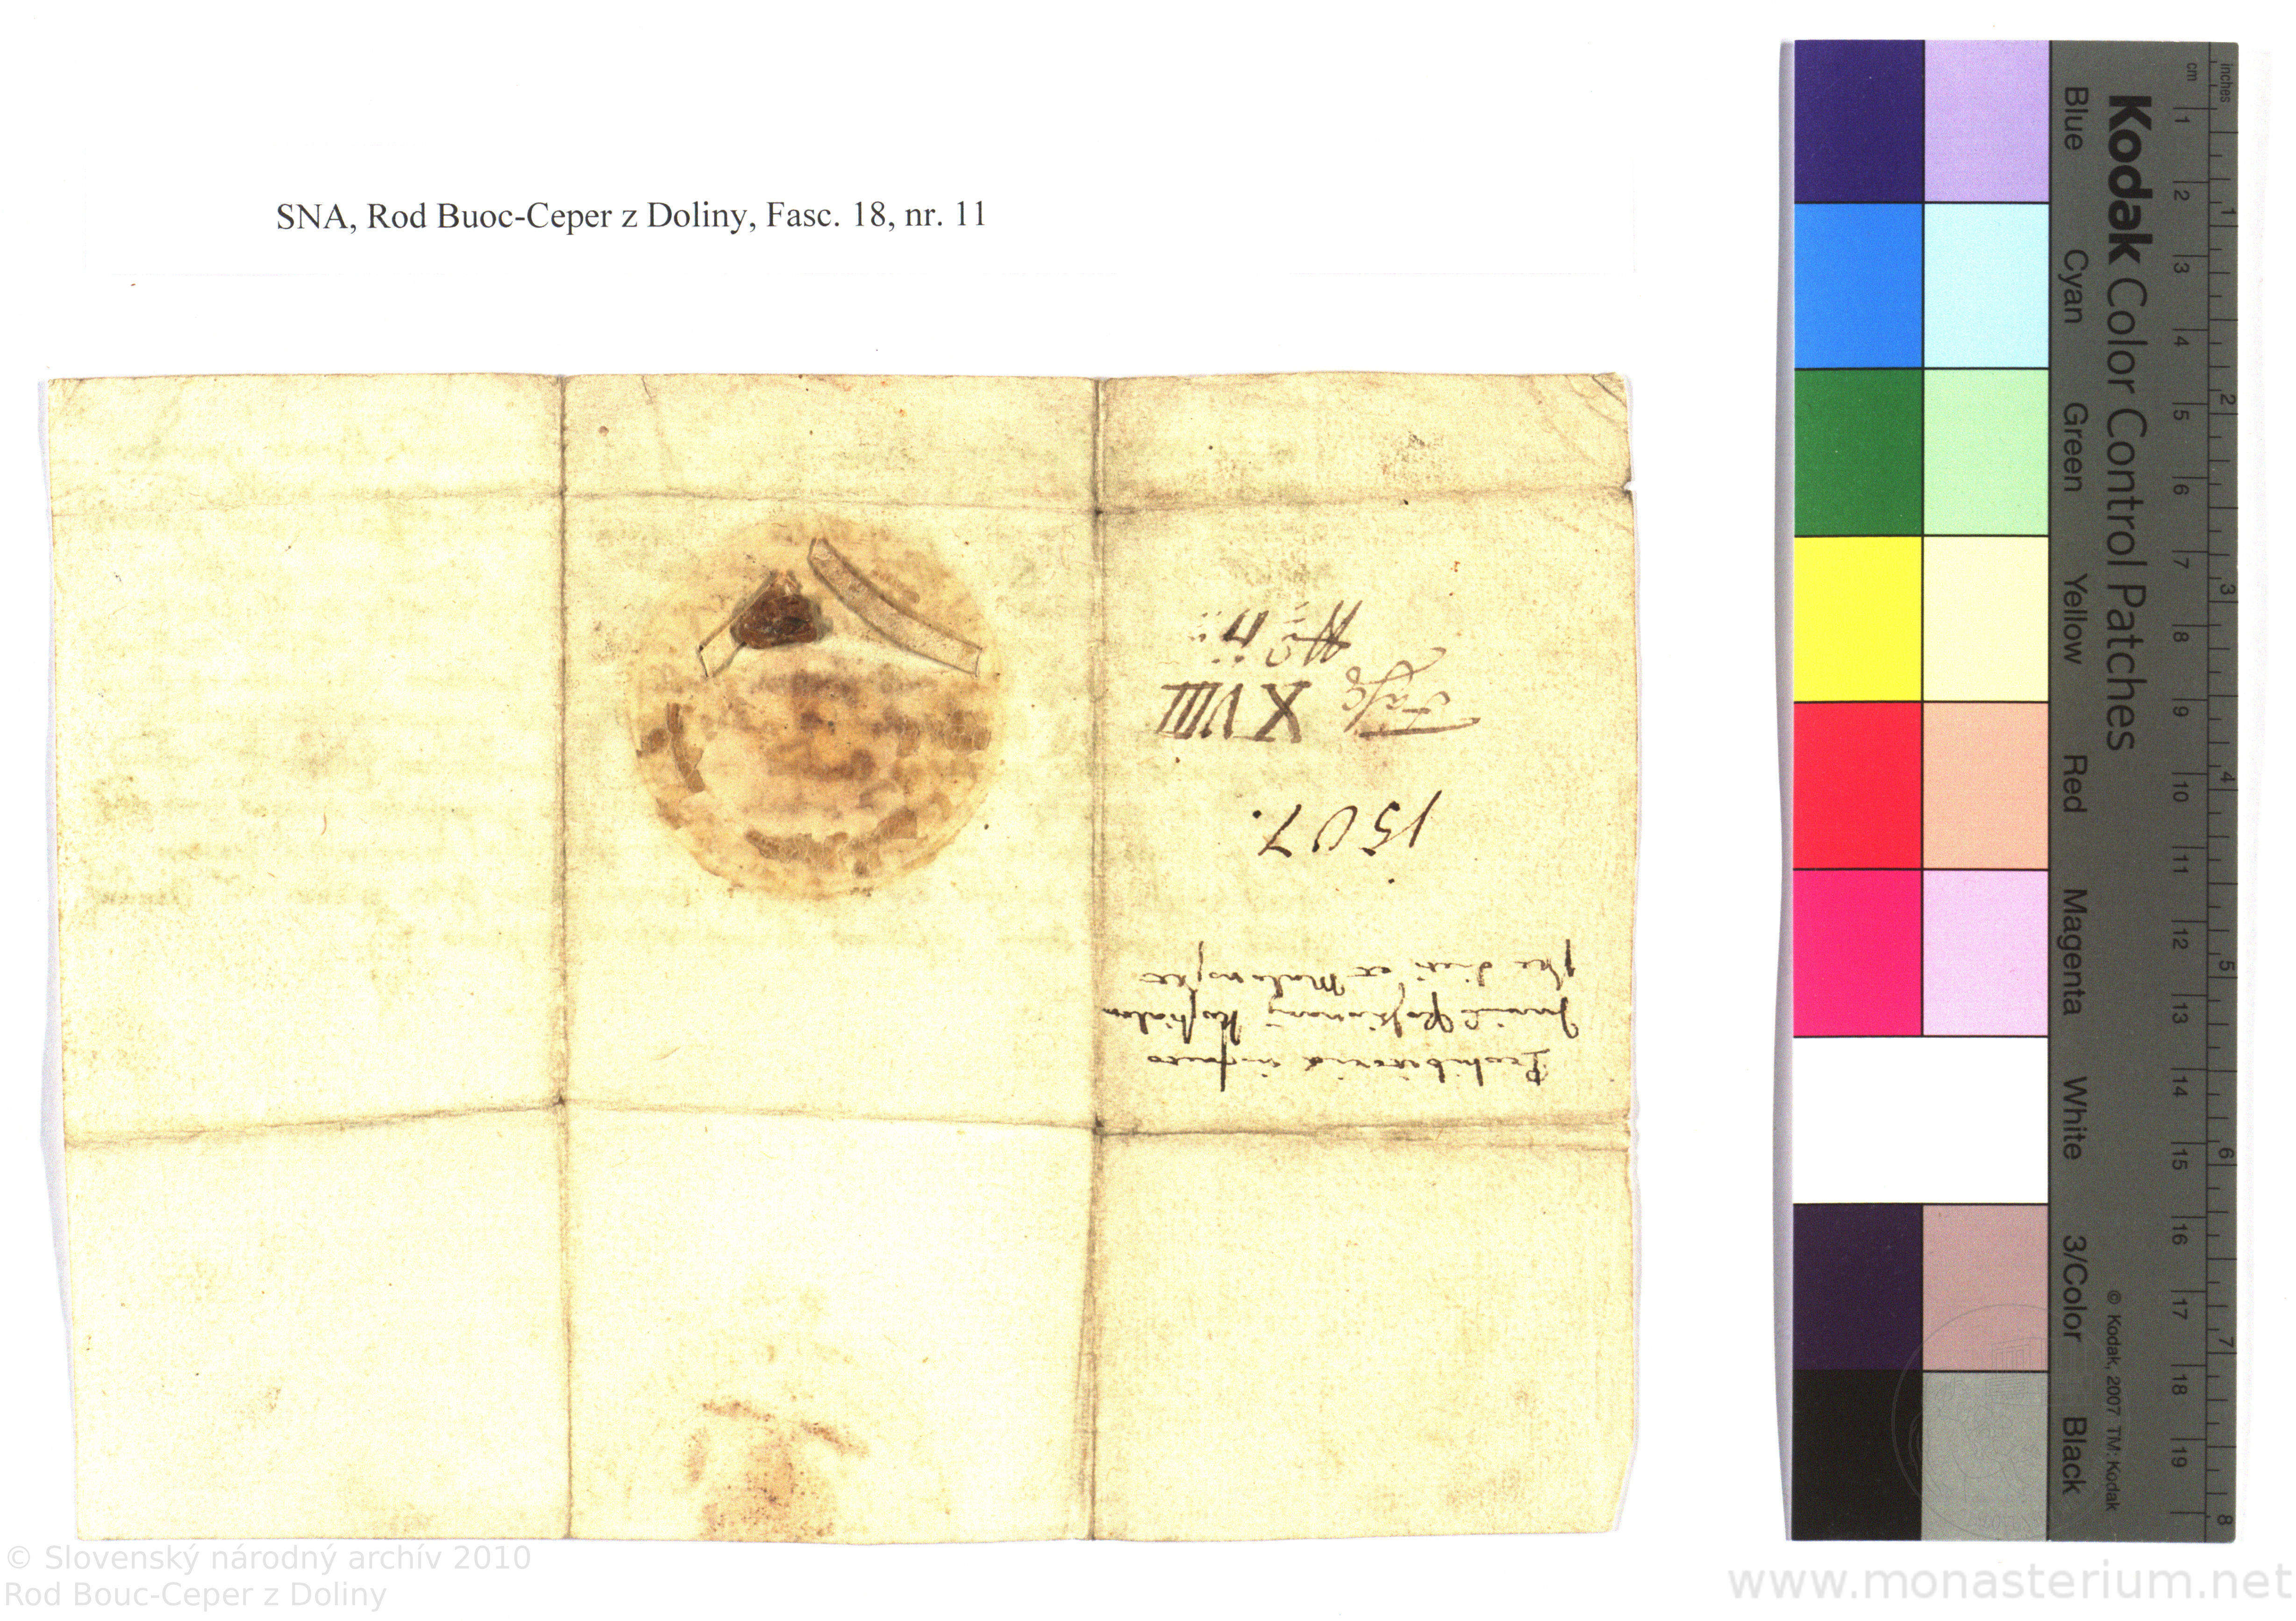 SNA, Rod Buoc-Ceper z Doliny, Fasc. 18, nr. 11
Prohibitoria
dicti ex
1507.
Fasc XVIII
No 11
Kodak Color Control Patches
Blue Cyan Green Yellow Red Magenta White 3/Color Black
© Kodak, 2007 TM: Kodak
cm 1 2 3 4 5 6 7 8 9 10 11 12 13 14 15 16 17 18 19
inches 1 2 3 4 5 6 7 8
© Slovenský národný archív 2010
Rod Bouc-Ceper z Doliny
www.monasterium.net